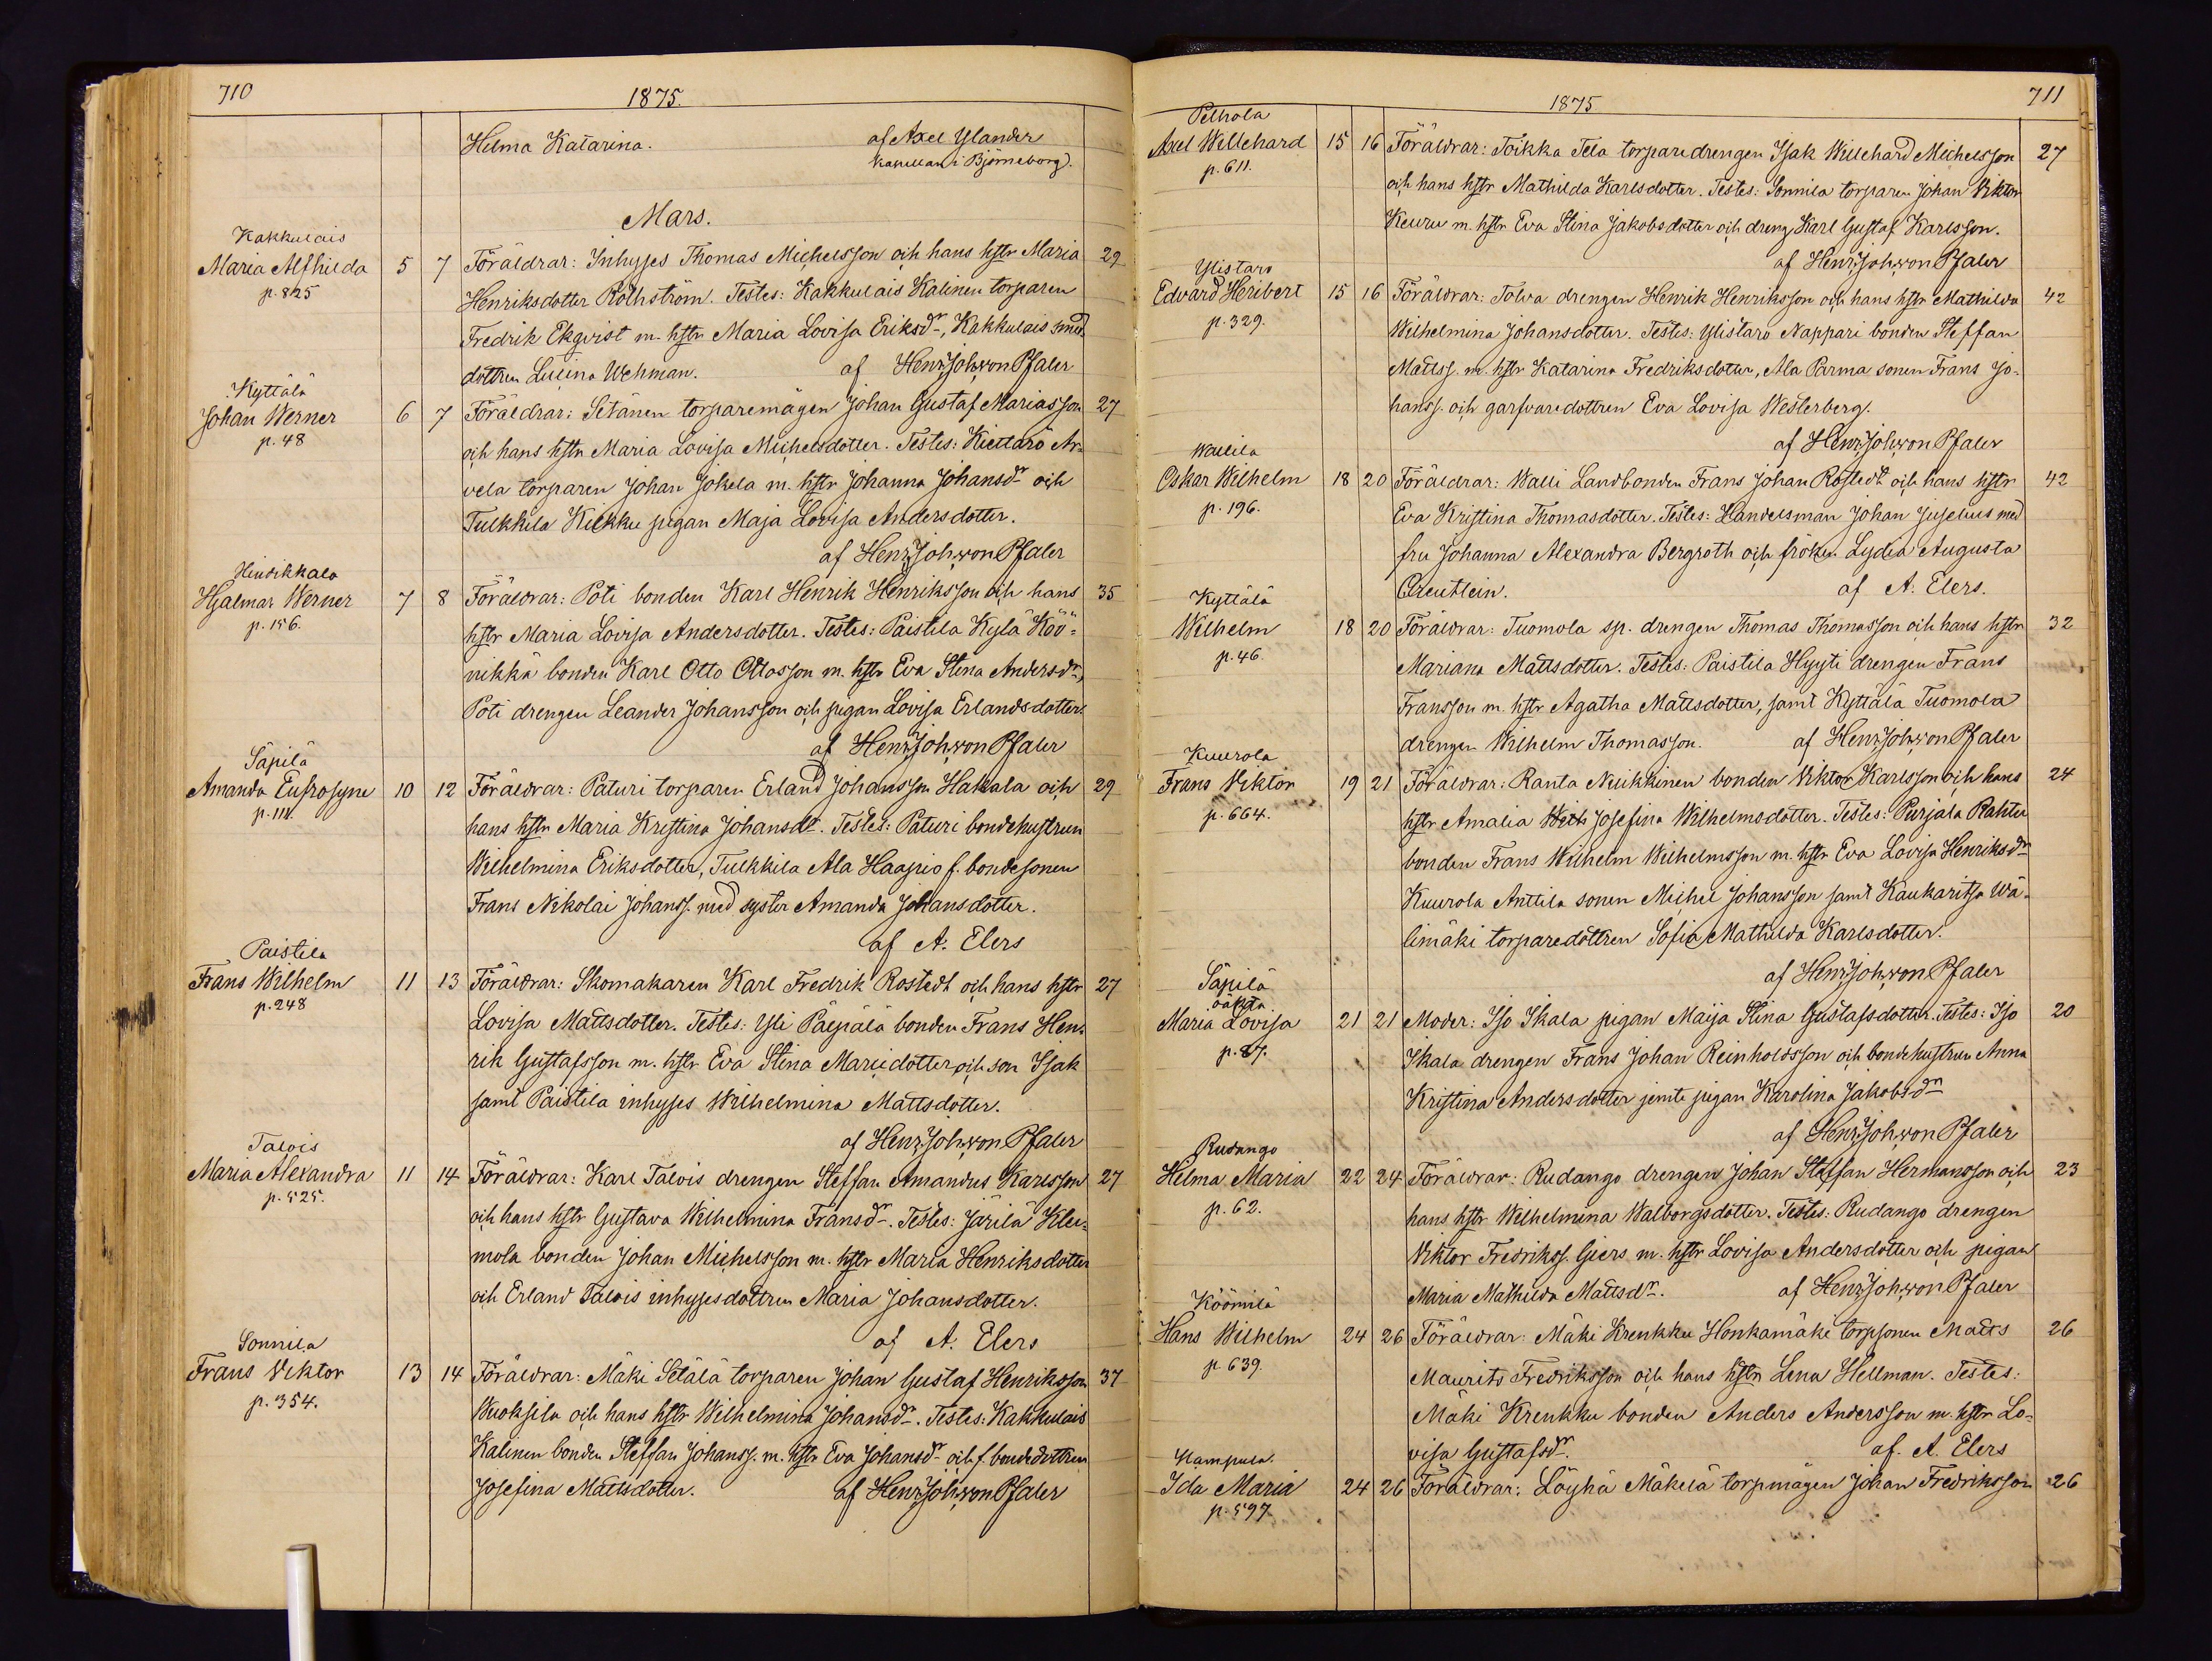 710
1875.
Helma Katarina. af Axel Ylander
Kapellan i Björneborg).
Mars.
Kakkulais
Maria Alfhilda 5 7 Föräldrar: Inhyses Thomas Michelsson och hans hstr Maria 29
p. 825 Henriksdotter Rothström. Testes: Kakkulais Kalinen torparen
Fredrik Ekqvist m. hstr Maria Lovisa Eriksdr, Kakkulais smed
dottren Lucina Wehman. af Henr. Joh. von Pfaler
Kyttälä
Johan Werner 6 7 Föräldrar: Setänen torparemågen Johan Gustaf Mariasson 27
p. 48 och hans hstr Maria Lovisa Michelsdotter. Testes: Kiettarö Ar-
vela torparen Johan Jokela m. hstr Johanna Johansdr och
Tulkkila Kiikku pigan Maja Lovisa Andersdotter.
af Henr. Joh. von Pfaler
Hindikkala
Hjalmar Werner 7 8 Föräldrar: Poti bonden Karl Henrik Henriksson och hans 35
p. 156. hstr Maria Lovisa Andersdotter. Testes: Paistila Kylä Köö-
nikkä bonden Karl Otto Ottosson m. hstr Eva Stina Andersdr,
Poti drengen Leander Johansson och pigan Lovisa Erlandsdotter.
af Henr. Joh. von Pfaler
Säpilä
Amanda Eufrosyne 10 12 Föräldrar: Paturi torparen Erland Johansson Hakala och 29
p. 111. hans hstr Maria Kristina Johansdr. Testes: Paturi bondehustrun
Wilhelmina Eriksdotter, Tulkkila Ala Haapio f. bondesonen
Frans Nikolai Johanss. med syster Amanda Johansdotter.
af A. Elers
Paistila
Frans Wilhelm 11 13 Föräldrar: Skomakaren Karl Fredrik Rostedt och hans hstr 27
p. 248 Lovisa Mattsdotter. Testes: Yli Päipälä bonden Frans Hen-
rik Gustafsson m. hstr Eva Stina Mariedotter och son Isak
samt Paistila inhyses Wilhelmina Mattsdotter.
af Henr. Joh. von Pfaler
Talois
Maria Alexandra 11 14 Föräldrar: Karl Talois drengen Steffan Amandus Karlsson 27
p. 525. och hans hstr Gustava Wilhelmina Fransdr. Testes: Järilä Klee-
mola bonden Johan Michelsson m. hstr Maria Henriksdotter
och Erland Talois inhysesdottren Maria Johansdotter.
af A. Elers
Sonnila
Frans Viktor 13 14 Föräldrar: Mäki Setälä torparen Johan Gustaf Henriksson 37
p. 354. Wuoksila och hans hstr Wilhelmina Johansdr. Testes: Kakkulais
Kalinen bonden Steffan Johanss. m. hstr Eva Johansdr och f. bondedottren
Josefina Mattsdotter. af Henr. Joh. von Pfaler
711
1875
Pelhola
Axel Willehard 15 16 Föräldrar: Toikka Tela torparedrengen Isak Willehard Michelsson 27
p. 611. och hans hstr Mathilda Karlsdotter. Testes: Sonnila torparen Johan Viktor
Keuru m. hstr Eva Stina Jakobsdotter och dreng Karl Gustaf Karlsson.
af Henr. Joh. von Pfaler
Ylistaro
Edvard Heribert 15 16 Föräldrar: Tolva drengen Henrik Henriksson och hans hstr Mathilda 42
p. 329. Wilhelmina Johansdotter. Testes: Ylistaro Nappari bonden Steffan
Mattss. m. hstr Katarina Fredriksdotter, Ala Parma sonen Frans Jo-
hanss. och garfvaredottren Eva Lovisa Westerberg.
af Henr. Joh. von Pfaler
Wallila
Oskar Wilhelm 18 20 Föräldrar: Walli Landbonden Frans Johan Rostedt och hans hstr 42
p. 196. Eva Kristina Thomasdotter. Testes: Handelsman Johan Juselius med
fru Johanna Alexandra Bergroth och fröken Lydia Augusta
af A. Elers.
Kyttälä
Wilhelm 18 20 Föräldrar: Tuomola sp. drengen Thomas Thomasson och hans hstr 32
p. 46. Mariana Mattsdotter. Testes: Paistila Hyyti drengen Frans
Fransson m. hstr Agatha Mattsdotter, samt Kyttälä Tuomola
drengen Wilhelm Thomasson. af Henr. Joh. von Pfaler
Kuurola
Frans Viktor 19 21 Föräldrar: Ranta Nuikkinen bonden Viktor Karlsson och hans 24
p. 664. hstr Amalia Josefina Wilhelmsdotter. Testes: Purjala Rahtu
bonden Frans Wilhelm Wilhelmsson m. hstr Eva Lovisa Henriksdr
Kuurola Anttila sonen Michel Johansson samt Kaukaritsa Wä-
limäki torparedottren Sofia Mathilda Karlsdotter.
af Henr. Joh. von Pfaler
Säpilä
oäkta
Maria Lovisa 21 21 Moder: Iso Ikala pigan Maija Stina Gustafsdotter. Testes: Iso 20
p. 87. Ikala drengen Frans Johan Reinholdsson och bondehustrun Anna
Kristina Andersdotter jemte pigan Karolina Jakobsdr
af Henr. Joh. von Pfaler
Rudango
Helma Maria 22 24 Föräldrar: Rudango drengen Johan Steffan Hermansson och 23
p. 62. hans hstr Wilhelmina Walborgsdotter. Testes: Rudango drengen
Viktor Fredrikss. Giers m. hstr Lovisa Andersdotter och pigan
Maria Mathilda Mattsdr. af Henr. Joh. von Pfaler
Köömilä
Hans Wilhelm 24 26 Föräldrar: Mäki Krenkku Honkamäki torpsonen Matts 26
p 639. Maurits Fredriksson och hans hstr Lena Hellman. Testes:
Mäki Krenkku bonden Anders Andersson m. hstr Lo-
visa Gustafsdr. af. A. Elers
Kampula.
Ida Maria 24 26 Föräldrar: Löyhä Mäkelä torpmågen Johan Fredriksson 26
p. 597.